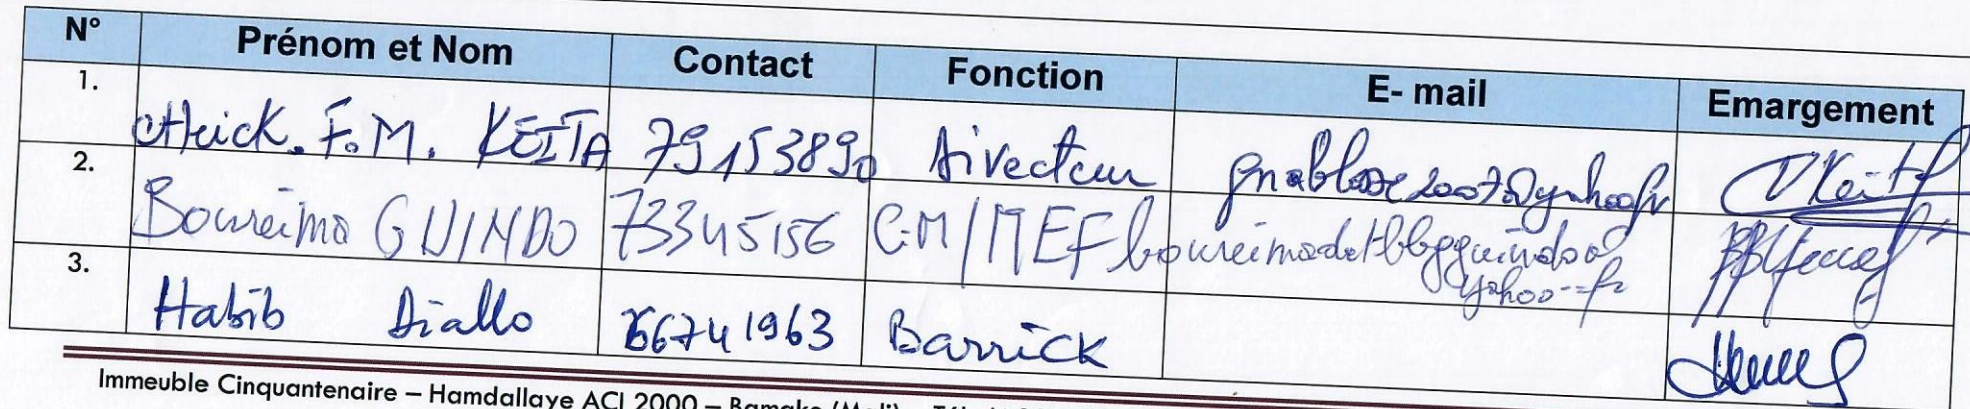 N° Prénom et Nom Contact Fonction E- mail Emargement
1. Cheick. F.M. KEITA 79153890 Directeur
2. Boureima GUINDO 73345156 C.M/MEF
yahoo.fr
3. Habib Diallo 66741963 Barrick
Immeuble Cinquantenaire – Hamdallaye ACI 2000 – Bamako (Mali)